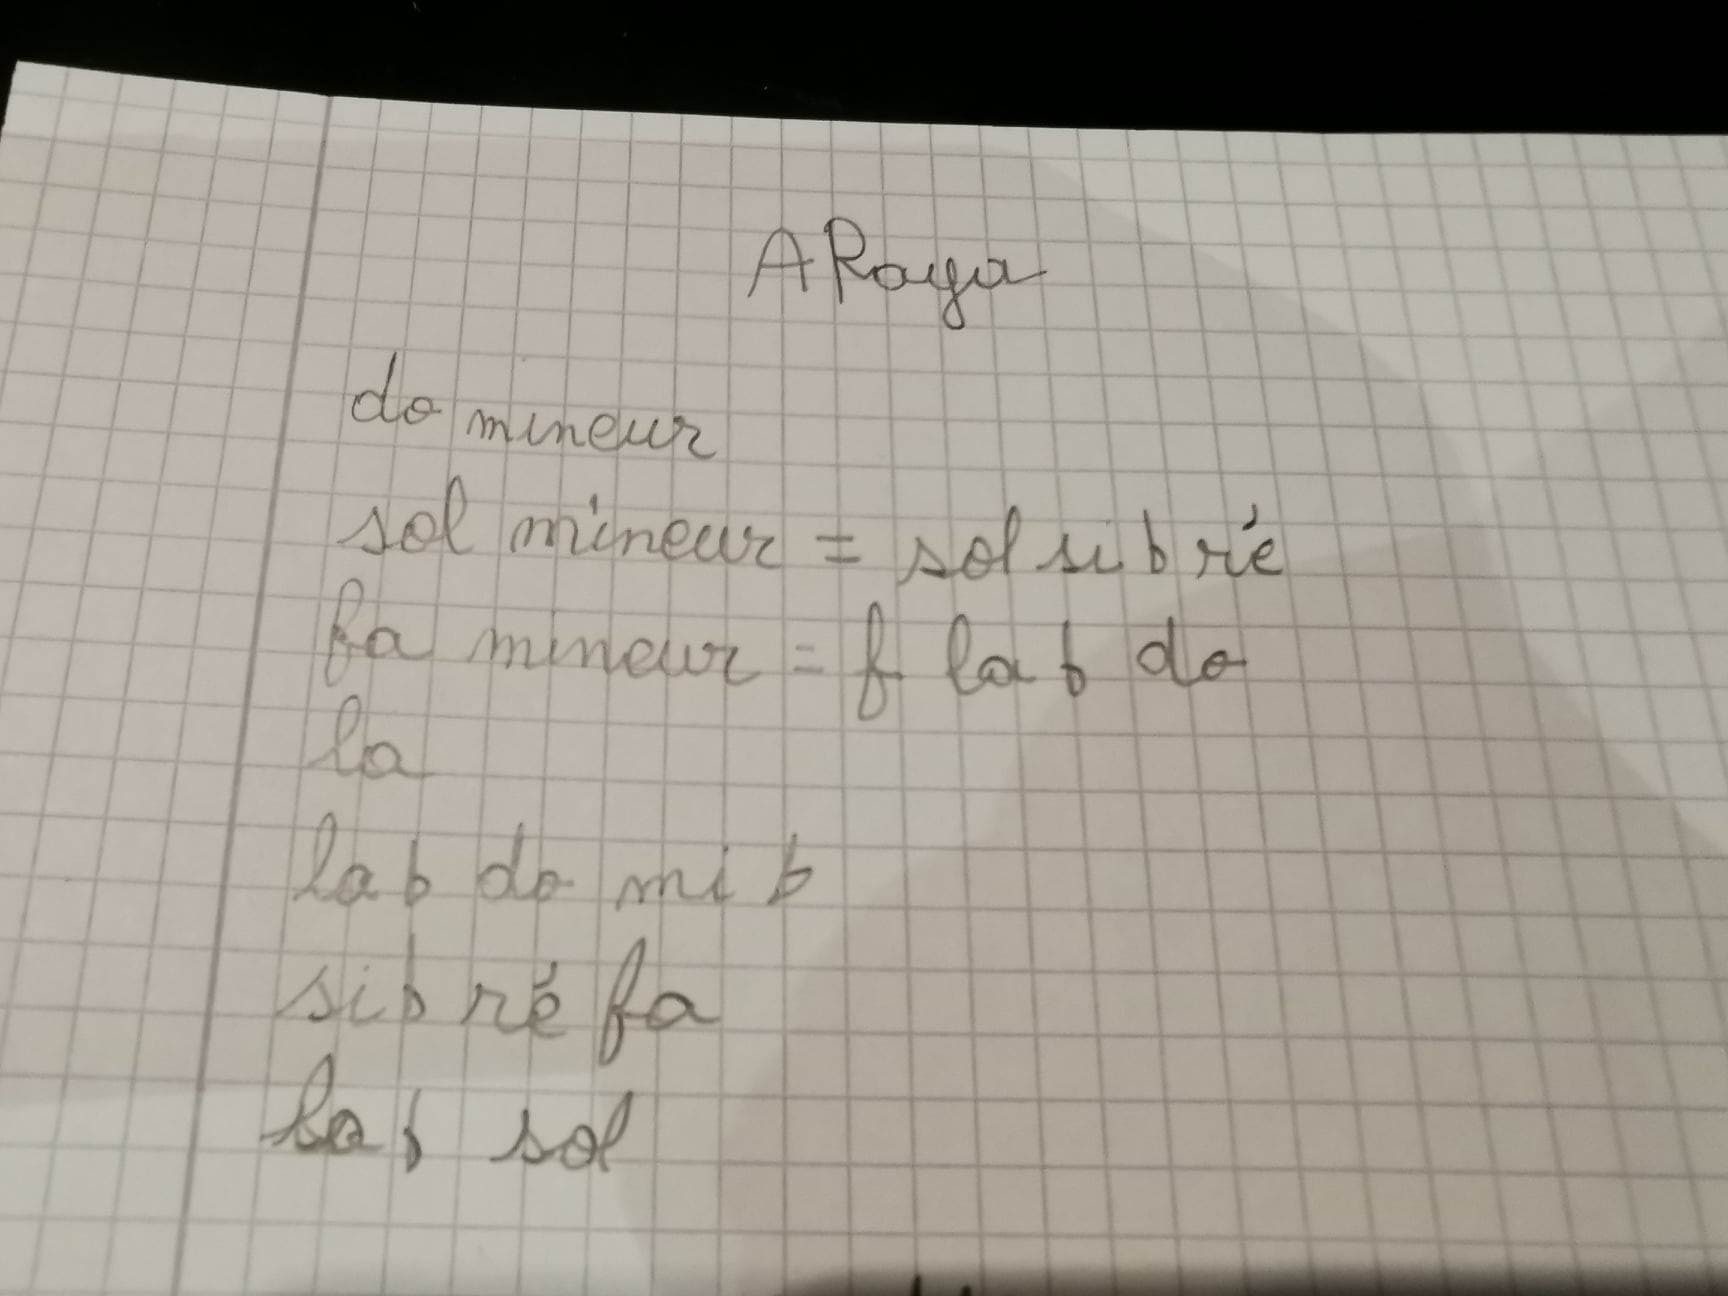 A Raya
do mineur
sol mineur = sol si b ré
fa mineur = f la b do
la
la b do mi b
si b ré fa
la b sol